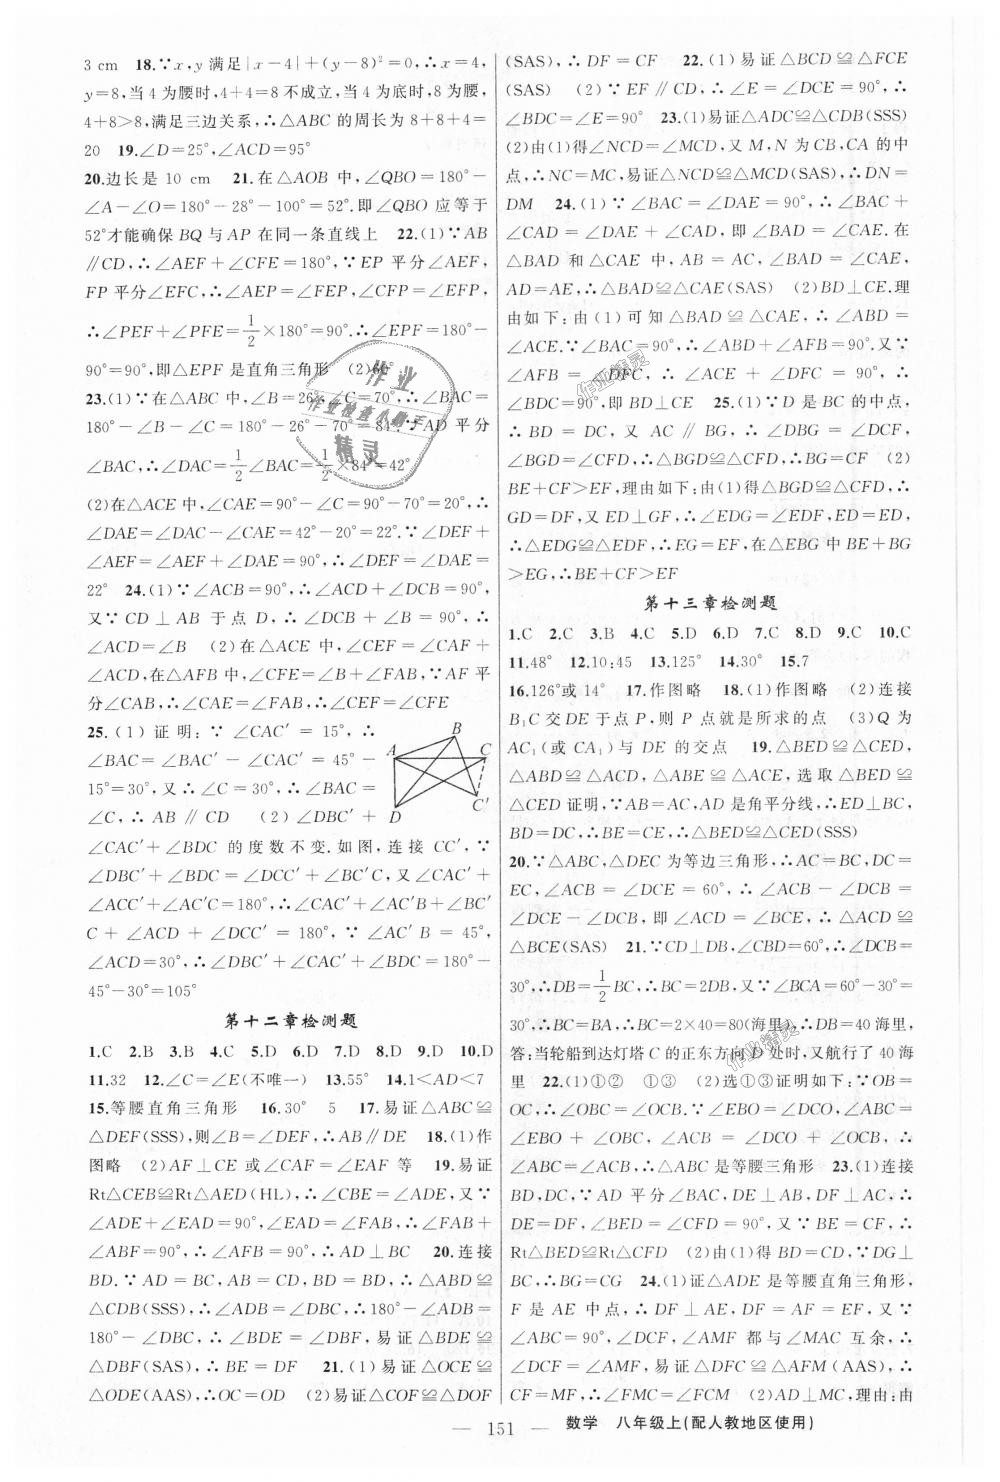 3 cm　18.∵x,y满足|x－4|＋(y－8)²＝0,∴x＝4,
y＝8,当4为腰时,4＋4＝8不成立,当4为底时,8为腰,
4＋8>8,满足三边关系,∴△ABC的周长为8＋8＋4＝
20　19.∠D＝25°,∠ACD＝95°
20.边长是10 cm　21.在△AOB中,∠QBO＝180°－
∠A－∠O＝180°－28°－100°＝52°.即∠QBO应等于
52°才能确保BQ与AP在同一条直线上　22.(1)∵AB
∥CD,∴∠AEF＋∠CFE＝180°,∵EP平分∠AEF,
FP平分∠EFC,∴∠AEP＝∠FEP,∠CFP＝∠EFP,
∴∠PEF＋∠PFE＝1/2×180°＝90°.∴∠EPF＝180°－
90°＝90°,即△EPF是直角三角形　(2)60°
23.(1)∵在△ABC中,∠B＝26°,∠C＝70°,∴∠BAC＝
180°－∠B－∠C＝180°－26°－70°＝84°.∵AD平分
∠BAC,∴∠DAC＝1/2∠BAC＝1/2×84°＝42°
(2)在△ACE中,∠CAE＝90°－∠C＝90°－70°＝20°,∴
∠DAE＝∠DAC－∠CAE＝42°－20°＝22°.∵∠DEF＋
∠AEF＝∠AEF＋∠DAE＝90°,∴∠DEF＝∠DAE＝
22°　24.(1)∵∠ACB＝90°,∴∠ACD＋∠DCB＝90°,
又∵CD⊥AB于点D,∴∠DCB＋∠B＝90°,∴
∠ACD＝∠B　(2)在△ACE中,∠CEF＋∠CAF＝
∠ACD,在△AFB中,∠CFE＝∠B＋∠FAB,∵AF平
分∠CAB,∴∠CAE＝∠FAB,∴∠CEF＝∠CFE
25.(1)证明:∵∠CAC′＝15°,∴
∠BAC＝∠BAC′－∠CAC′＝45°－
15°＝30°,又∴∠C＝30°,∴∠BAC＝
∠C,∴AB∥CD　(2)∠DBC′＋
∠CAC′＋∠BDC的度数不变.如图,连接CC′,∵
∠DBC′＋∠BDC＝∠DCC′＋∠BC′C,又∠CAC′＋
∠ACC′＋∠AC′C＝180°,∴∠CAC′＋∠AC′B＋∠BC′
C＋∠ACD＋∠DCC′＝180°,∵∠AC′B＝45°,
∠ACD＝30°,∴∠DBC′＋∠CAC′＋∠BDC＝180°－
45°－30°＝105°
A
B
C
C′
D
第十二章检测题
1.C　2.B　3.B　4.C　5.D　6.D　7.D　8.D　9.D　10.D
11.32　12.∠C＝∠E(不唯一)　13.55°　14.1<AD<7
15.等腰直角三角形　16.30°　5　17.易证△ABC≌
△DEF(SSS),则∠B＝∠DEF,∴AB∥DE　18.(1)作
图略　(2)AF⊥CE或∠CAF＝∠EAF等　19.易证
Rt△CEB≌Rt△AED(HL),∴∠CBE＝∠ADE,又∵
∠ADE＋∠EAD＝90°,∠EAD＝∠FAB,∴∠FAB＋
∠ABF＝90°,∴∠AFB＝90°,∴AD⊥BC　20.连接
BD.∵AD＝BC,AB＝CD,BD＝BD,∴△ABD≌
△CDB(SSS),∴∠ADB＝∠DBC,∴180°－∠ADB＝
180°－∠DBC,∴∠BDE＝∠DBF,易证△BDE≌
△DBF(SAS),∴BE＝DF　21.(1)易证△OCE≌
△ODE(AAS),∴OC＝OD　(2)易证△COF≌△DOF
(SAS),∴DF＝CF　22.(1)易证△BCD≌△FCE
(SAS)　(2)∵EF∥CD,∴∠E＝∠DCE＝90°,∴
∠BDC＝∠E＝90°　23.(1)易证△ADC≌△CDB(SSS)
(2)由(1)得∠NCD＝∠MCD,又M,N为CB,CA的中
点,∴NC＝MC,易证△NCD≌△MCD(SAS),∴DN＝
DM　24.(1)∵∠BAC＝∠DAE＝90°,∴∠BAC＋
∠CAD＝∠DAE＋∠CAD,即∠BAD＝∠CAE.在
△BAD和△CAE中,AB＝AC,∠BAD＝∠CAE,
AD＝AE,∴△BAD≌△CAE(SAS)　(2)BD⊥CE.理
由如下:由(1)可知△BAD≌△CAE,∴∠ABD＝
∠ACE.∵∠BAC＝90°,∴∠ABD＋∠AFB＝90°.又∵
∠AFB＝∠DFC,∴∠ACE＋∠DFC＝90°,∴
∠BDC＝90°,即BD⊥CE　25.(1)∵D是BC的中点,
∴BD＝DC,又AC∥BG,∴∠DBG＝∠DCF,
∠BGD＝∠CFD,∴△BGD≌△CFD,∴BG＝CF　(2)
BE＋CF>EF,理由如下:由(1)得△BGD≌△CFD,∴
GD＝DF,又ED⊥GF,∴∠EDG＝∠EDF,ED＝ED,
∴△EDG≌△EDF,∴EG＝EF,在△EBG中BE＋BG
>EG,∴BE＋CF>EF
第十三章检测题
1.C　2.C　3.B　4.C　5.D　6.D　7.C　8.D　9.C　10.C
11.48°　12.10:45　13.125°　14.30°　15.7
16.126°或14°　17.作图略　18.(1)作图略　(2)连接
B₁C交DE于点P,则P点就是所求的点　(3)Q为
AC₁(或CA₁)与DE的交点　19.△BED≌△CED,
△ABD≌△ACD,△ABE≌△ACE,选取△BED≌
△CED证明,∵AB＝AC,AD是角平分线,∴ED⊥BC,
BD＝DC,∴BE＝CE,∴△BED≌△CED(SSS)
20.∵△ABC,△DEC为等边三角形,∴AC＝BC,DC＝
EC,∠ACB＝∠DCE＝60°,∴∠ACB－∠DCB＝
∠DCE－∠DCB,即∠ACD＝∠BCE,∴△ACD≌
△BCE(SAS)　21.∵CD⊥DB,∠CBD＝60°,∴∠DCB＝
30°,∴DB＝1/2BC,∴BC＝2DB,又∵∠BCA＝60°－30°＝
30°,∴BC＝BA,∴BC＝2×40＝80(海里),∴DB＝40海里,
答:当轮船到达灯塔C的正东方向D处时,又航行了40海
里　22.(1)①②　①③　(2)选①③证明如下:∵OB＝
OC,∴∠OBC＝∠OCB.∵∠EBO＝∠DCO,∠ABC＝
∠EBO＋∠OBC,∠ACB＝∠DCO＋∠OCB,∴
∠ABC＝∠ACB,∴△ABC是等腰三角形　23.(1)连接
BD,DC,∵AD平分∠BAC,DE⊥AB,DF⊥AC,∴
DE＝DF,∠BED＝∠CFD＝90°,又∵BE＝CF,∴
Rt△BED≌Rt△CFD　(2)由(1)得BD＝CD,∵DG⊥
BC,∴BG＝CG　24.(1)证△ADE是等腰直角三角形,
F是AE中点,∴DF⊥AE,DF＝AF＝EF,又∵
∠ABC＝90°,∠DCF,∠AMF都与∠MAC互余,∴
∠DCF＝∠AMF,易证△DFC≌△AFM(AAS),∴
CF＝MF,∴∠FMC＝∠FCM　(2)AD⊥MC,理由:由
— 151 —　数学　八年级上(配人教地区使用)
作业
作业检查小助手
精灵
作业精灵
作业精灵